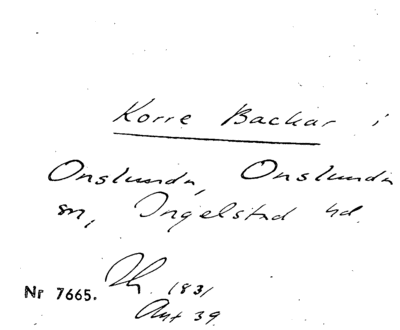 Korre Backar i
Onslunda, Onslunda
sn, Ingelstad hd.
Nr 7665. Th. 1831
Ant 39